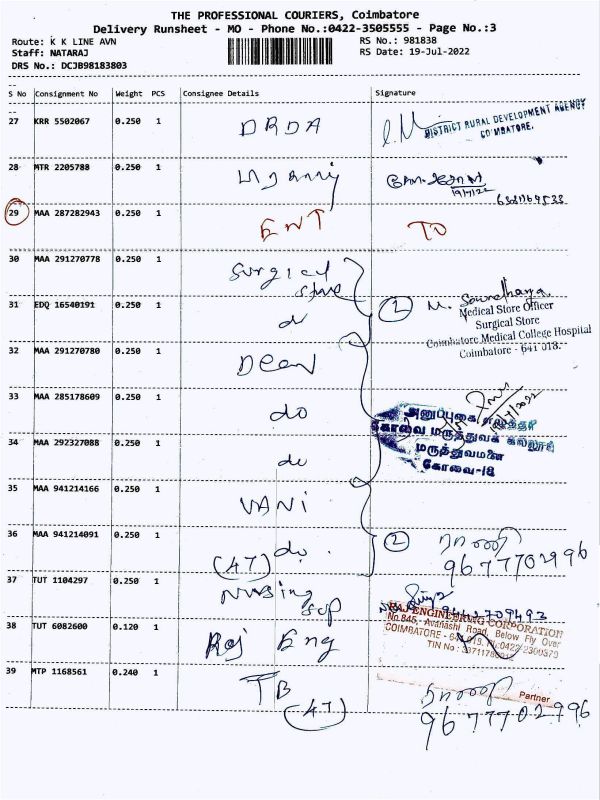 THE PROFESSIONAL COURIERS, Coimbatore
Delivery Runsheet - MO - Phone No.:0422-3505555 - Page No.:3
Route: K K LINE AVN
RS No.: 981838
Staff: NATARAJ
RS Date: 19-Jul-2022
DRS No.: DCJB98183803
S No Consignment No Weight PCS Consignee Details Signature
27 KRR 5502067 0.250 1 DRDA
DISTRICT RURAL DEVELOPMENT AGENCY
COIMBATORE.
28 MTR 2205788 0.250 1
19/7/22
29 MAA 287282943 0.250 1 ENT TO
30 MAA 291270778 0.250 1 Surgical
Store
31 EDQ 16540191 0.250 1 do
2 M. Soundharya
Medical Store Officer
Surgical Store
Coimbatore Medical College Hospital
Coimbatore - 641 018.
32 MAA 291270780 0.250 1 Dean
33 MAA 285178609 0.250 1 do
அனுப்புகை எழுத்தர்
கோவை மருத்துவக் கல்லூரி
மருத்துவமனை
கோவை-18
34 MAA 292327088 0.250 1 do
35 MAA 941214166 0.250 1 VANI
36 MAA 941214091 0.250 1 do.
(47)
2 ராணி
9677702996
37 TUT 1104297 0.250 1 Nursing
Sup
38 TUT 6082600 0.120 1 Raj Eng
RAJ ENGINEERING CORPORATION
No.845, Avanashi Road, Below Fly Over
COIMBATORE - 641 018.
TIN No :
Partner
39 MTP 1168561 0.240 1 TB
(47)
ராணி
9677702996